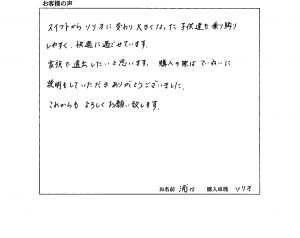 お客様の声
スイフトからソリオに変わり大きくなった子供達も乗り降り
しやすく、快適に過ごせています。
家族で遠出したいと思います。購入の際はていねいに
説明もしていただきありがとうございました。
これからもよろしくお願い致します。
お名前 浦口 購入車種 ソリオ